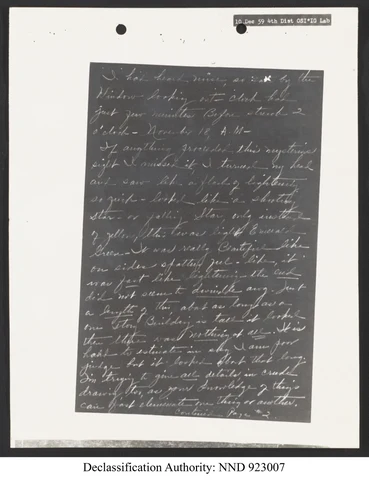 10 Dec 59 4th Dist OSI*IG Lab
I had heard mine so sat by the
Window looking out - Clock had
just few minutes Before struck 2
o'clock - November 18, A.M-
If anything preceeded this mysterious
sight I missed it I turned my head
and saw like a flash of lightening
so quick - looked like a shooting
star or falling Star, only instead
of yellow, this was light Emerald
Green - It was really Beautiful like
on sides like, it
was fast like lightening - the end
did not seem to dwindle any. Just
a length of this about as long as a
one Story Building is tall it looked
the there was nothing at all. It is
hard to estimate in sky I am poor
judge But it looked about that long
I'm trying to give all details in crude
drawing too, as your knowledge of things
can just eliminate one thing or another.
Continued - Page #2
Declassification Authority: NND 923007